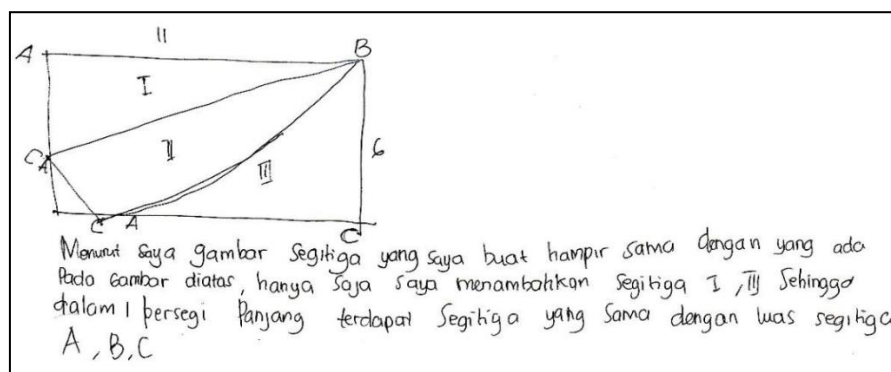 11
A B
I
II
6
C A
III
C A C
Menurut saya gambar segitiga yang saya buat hampir sama dengan yang ada
Pada Gambar diatas, hanya saja saya menambahkan segitiga I, III Sehingga
dalam 1 persegi Panjang terdapat Segitiga yang sama dengan luas segitiga
A, B, C